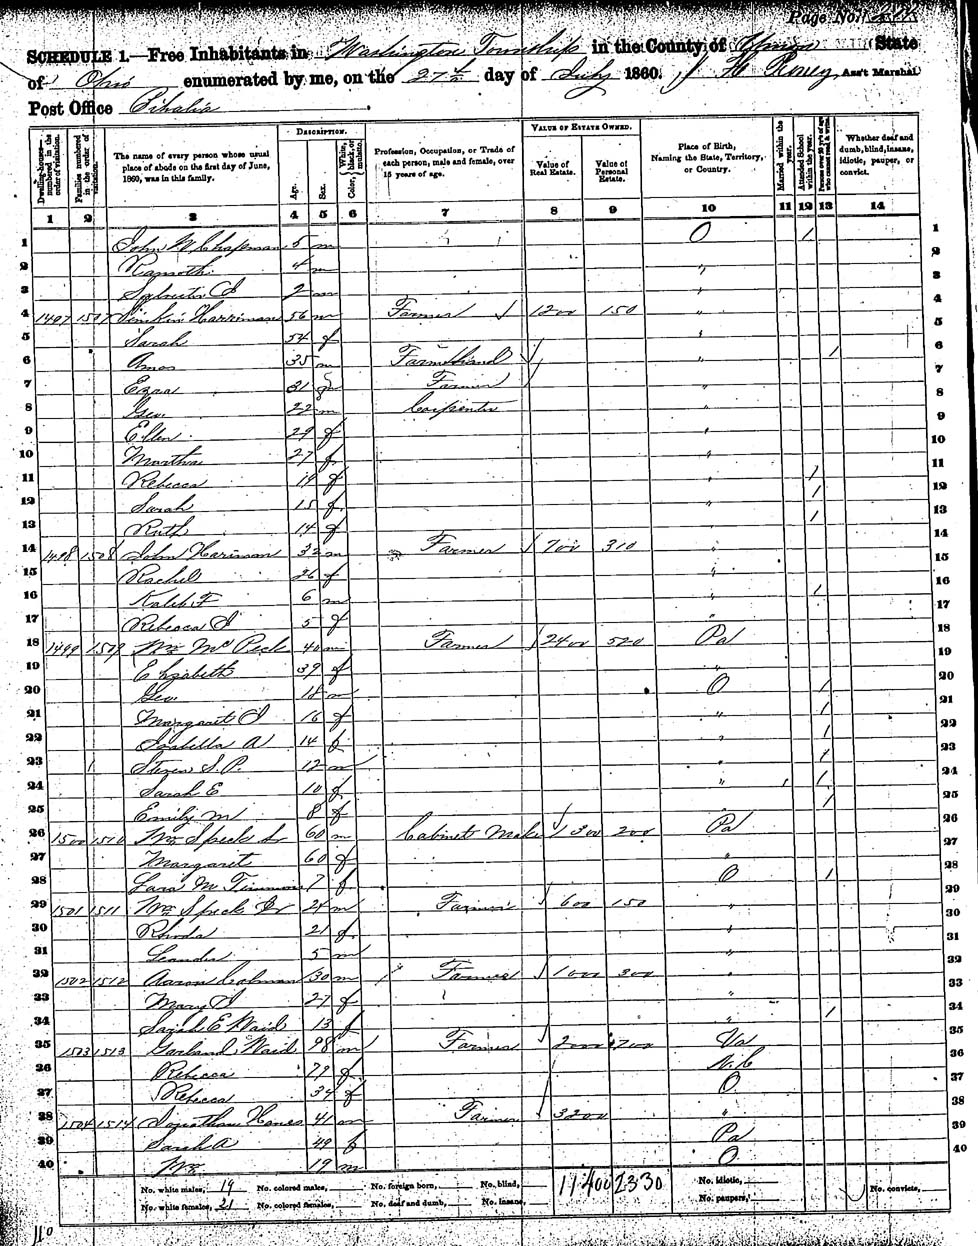 Page No. 204
SCHEDULE 1.—Free Inhabitants in Washington Township in the County of Union State
of Ohio enumerated by me, on the 27th day of July 1860. Ass't Marshal
Post Office
DESCRIPTION. VALUE OF ESTATE OWNED.
Dwelling-houses—numbered in the order of visitation. Families numbered in the order of visitation. The name of every person whose usual place of abode on the first day of June, 1860, was in this family. Age. Sex. Color, White, black, or mulatto. Profession, Occupation, or Trade of each person, male and female, over 15 years of age. Value of Real Estate. Value of Personal Estate. Place of Birth, Naming the State, Territory, or Country. Married within the year. Attended School within the year. Persons over 20 y'rs of age who cannot read & write. Whether deaf and dumb, blind, insane, idiotic, pauper, or convict.
1 2 3 4 5 6 7 8 9 10 11 12 13 14
1 John W Chapman 5 m O / 1
2 4 m " 2
3 2 m " 3
4 1497 1507 Harriman 56 m Farmer 1200 150 " 4
5 Sarah 54 f " 5
6 Amos 35 m Farm Hand " / 6
7 Ezra 31 m Farmer " 7
8 Geo. 22 m Carpenter " 8
9 Ellen 29 f " 9
10 Martha 27 f " 10
11 Rebecca 19 f " / 11
12 Sarah 15 f " / 12
13 Ruth 14 f " / 13
14 1498 1508 John Hariman 32 m Farmer 700 310 " 14
15 Rachel 26 f " 15
16 Kaleb F 6 m " / 16
17 Rebecca J 5 f " 17
18 1499 1509 Wm McPeck 40 m Farmer 2400 520 Pa 18
19 Elizabeth 39 f " 19
20 Geo. 18 m O / 20
21 Margaret J 16 f " / 21
22 Isabella A 14 f " / 22
23 S. P. 12 m " / 23
24 Sarah E 10 f " / 24
25 Emily M 8 f / 25
26 1500 1510 Wm Speck Sr 60 m Cabinet Maker 1300 200 Pa 26
27 Margaret 60 f " 27
28 7 f O / 28
29 1501 1511 Wm Speck Jr 24 m Farmer 600 150 " 29
30 Rhoda 21 f " 30
31 Leander 5 m " 31
32 1502 1512 Aaron 30 m Farmer 1000 300 " 32
33 Mary J 27 f " 33
34 Sarah E Waid 13 f " / 34
35 1503 1513 Garland Waid 98 m Farmer 2000 700 Va 35
36 Rebecca 79 f N.C 36
37 Rebecca 34 f O 37
38 1504 1514 Jonathan Hanes 41 m Farmer 3200 " 38
39 Sarah A 49 f Pa 39
40 Wm 19 m O 40
No. white males, 19 No. colored males, No. foreign born, No. blind, 11400 2330 No. idiotic, No. convicts,
No. white females, 21 No. colored females, No. deaf and dumb, No. insane, No. paupers,